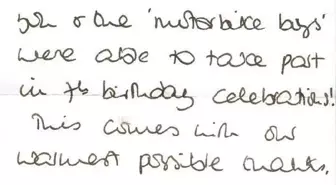 you & the 'motorbike boys'
were able to take part
in the birthday celebrations!
This comes with our
warmest possible thanks.